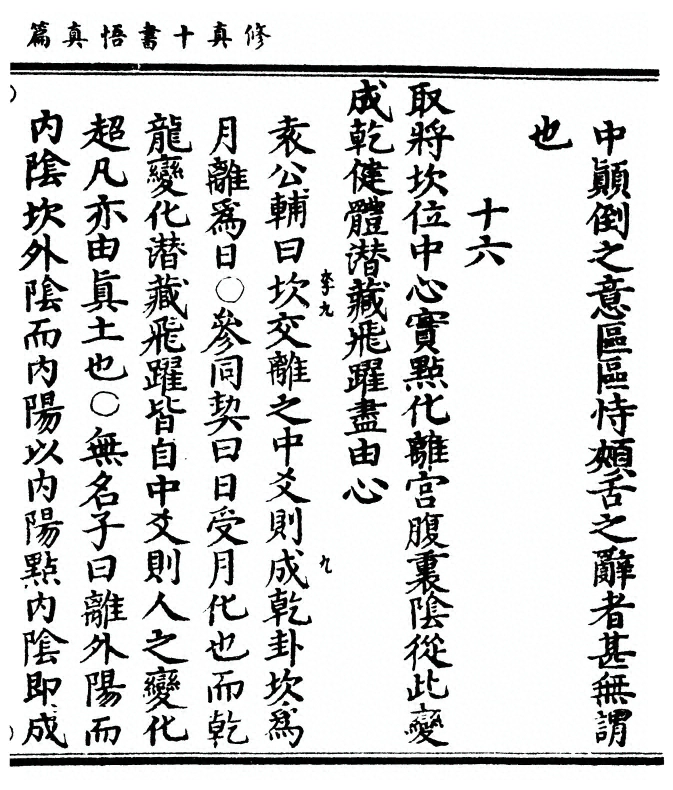 修真十書悟真篇
中顛倒之意區區恃頰舌之辭者甚無謂
也
十六
取將坎位中心實點化離宮腹裏陰從此變
成乾健體潛藏飛躍盡由心
袁公輔曰坎交離之中爻則成乾卦坎爲
李九
九
月離爲日○參同契曰日受月化也而乾
龍變化潛藏飛躍皆自中爻則人之變化
超凡亦由真土也○無名子曰離外陽而
內陰坎外陰而內陽以內陽點內陰即成